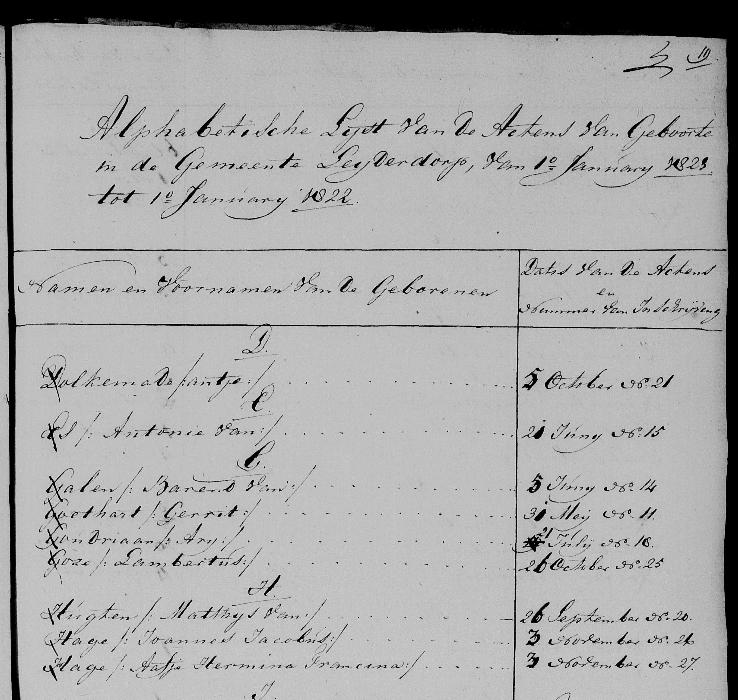 10
Alphabetische Lyst Van De Actens Van Geboorte
in de Gemeente Leyderdorp, Van 1o January 1821.
tot 1o January 1822.
Namen en Voornamen Van De Geborenen
Datis Van De Actens
en
Nummer Van Inschrijving
D.
Dolkemade /:antje:/ 5 October No. 21
E.
Es /: Antonie Van:/ 21 Juny No. 15
G.
Galen /: Barend Van:/ 5 Juny No. 14
Goothart /: Gerrit:/ 31 Meij No. 11.
Gondriaan /: Ary:/ 21 Julij No. 18.
Goze /: Lambertus:/ 26 October No. 25
H.
Hugten /: Matthys Van:/ 26 September No. 20.
Hage /: Joannes Jacobus:/ 3 November No. 26
Hage /: Aafje Hermina Francina:/ 3 November No. 27.
J.